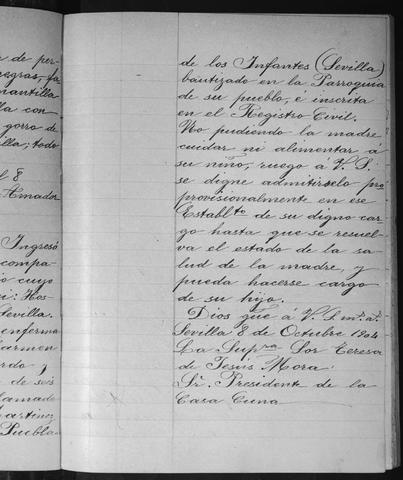 a de per-
negras, fa
mantilla
lla con
gorro de
illa; todo
l 8
Amador
Ingresó
compa
o cuyo
Hos
Sevilla.
enferma
armen
rdo y
de seis
llamado
artinez
Puebla
de los Infantes (Sevilla)
bautizado en la Parroquia
de su pueblo, é inscrita
en el Registro Civil.
No pudiendo la madre
cuidar ni alimentar á
su niño, ruego á V. S.
se digne admitirselo pro
provisionalmente en ese
Establto de su digno car
go hasta que se resuel-
va el estado de la sa
lud de la madre, y
pueda hacerse cargo
de su hijo.
Dios gue á V. S. ms. as.
Sevilla 8 de Octubre 1904
La Supra Sor Teresa
de Jesús Mora
Sr. Presidente de la
Casa Cuna